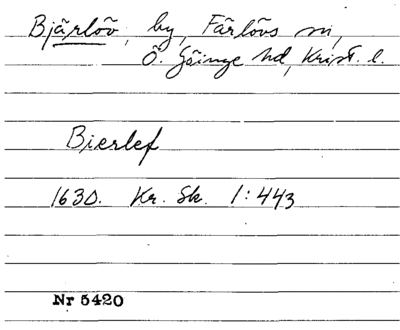 Bjärlöv, by, Färlövs sn,
Ö. Göinge hd, Krist. l.
Bierlef
1630. Kr. Sk. 1:443
Nr 5420